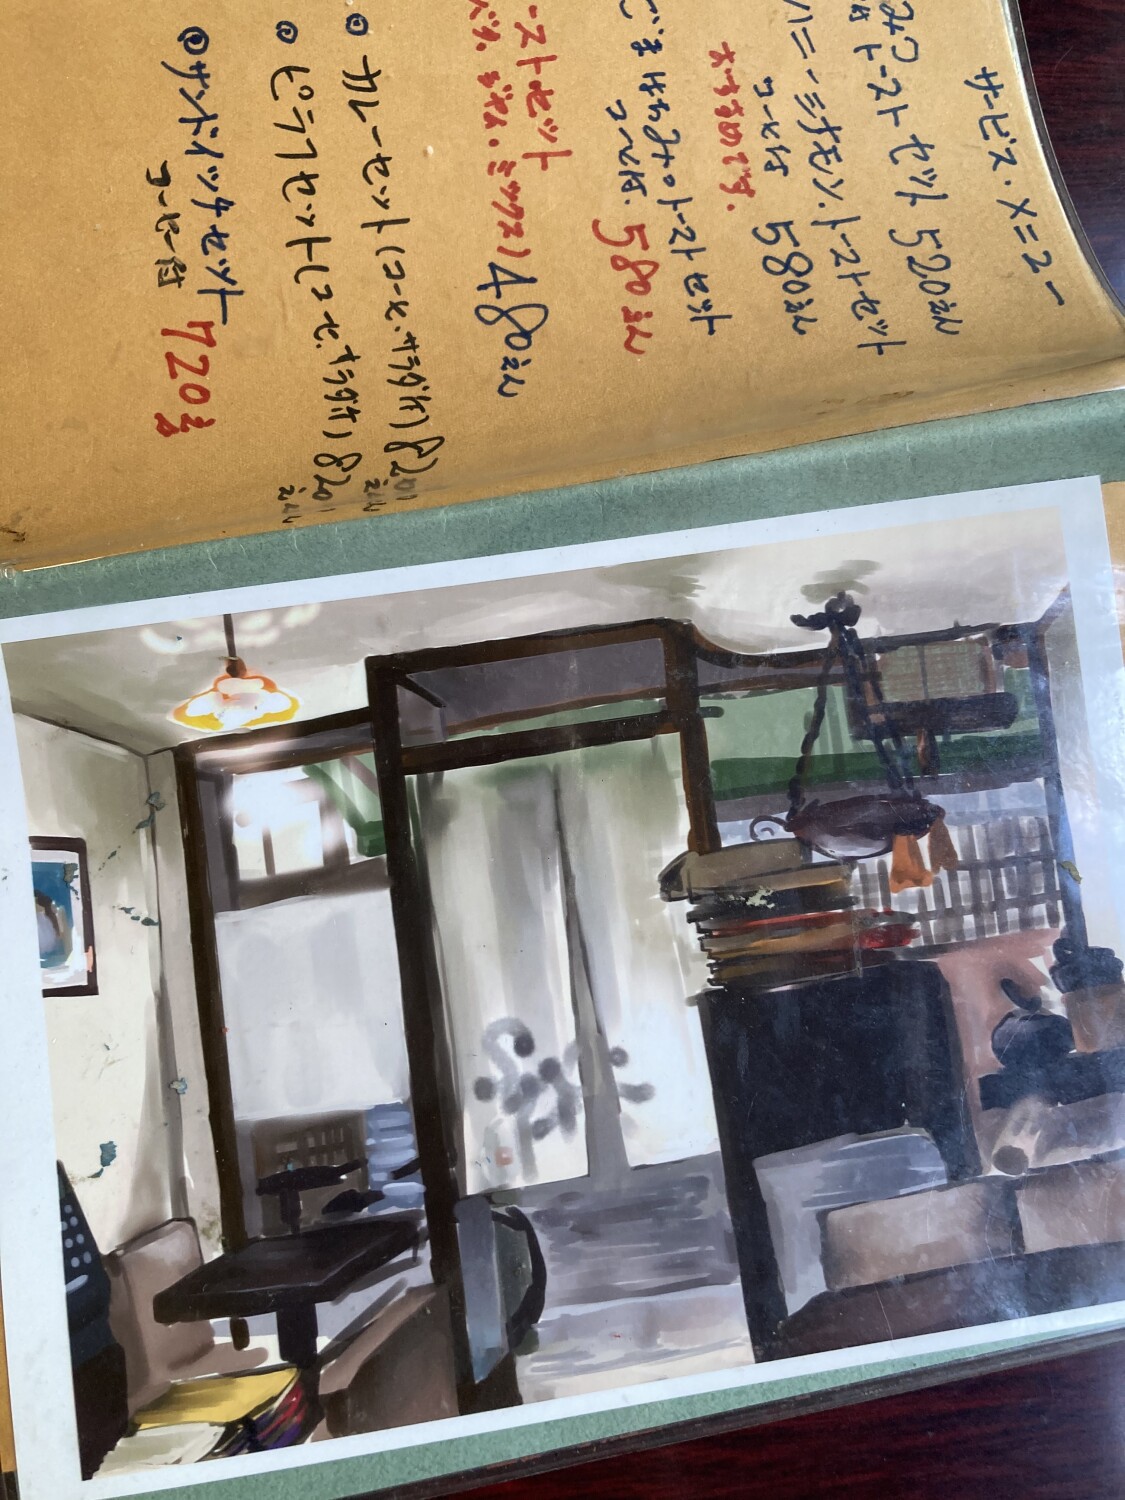 サービス・メニュー
みつ
付トーストセット 520えん
ハニーシナモン・トーストセット
コーヒー付 580えん
おすすめです。
ごまはちみつトーストセット
コーヒー付 580えん
ーストセット
バタ、ジャム、ミックス) 480えん
カレーセット(コーヒ、サラダ付) 820
えん
ピラフセット(コーヒ、サラダ付) 820
えん
サンドイッチセット 720えん
コーヒー付